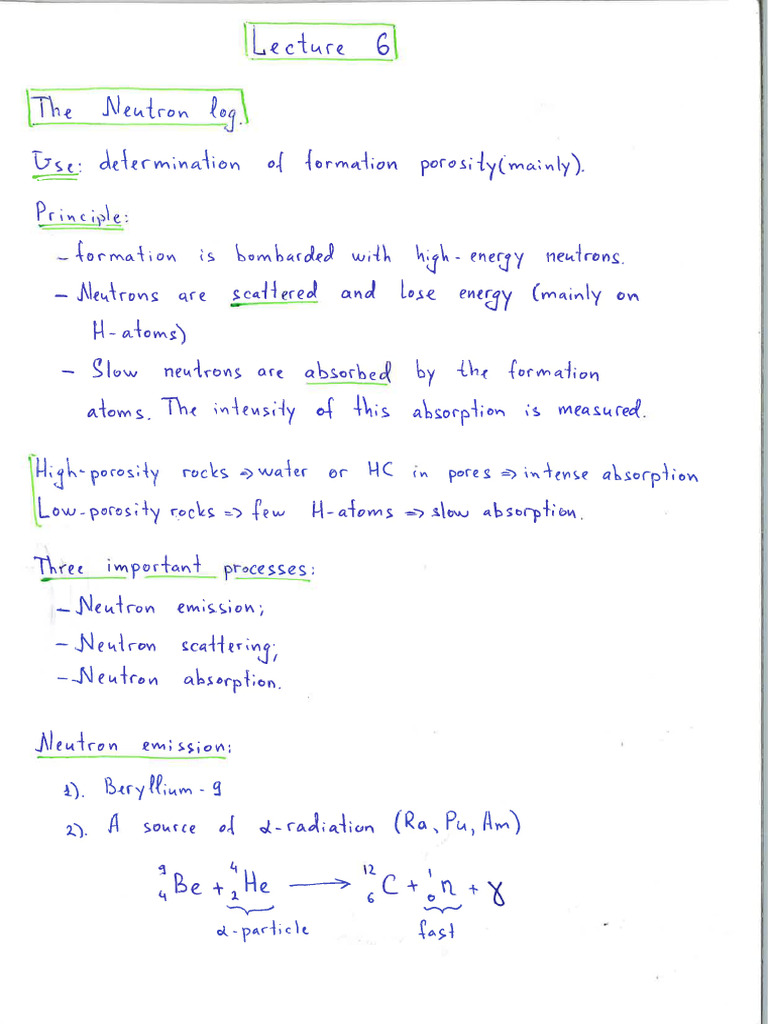 Lecture 6
The Neutron log.
Use: determination of formation porosity (mainly).
Principle:
- formation is bombarded with high-energy neutrons.
- Neutrons are scattered and lose energy (mainly on
H-atoms)
- Slow neutrons are absorbed by the formation
atoms. The intensity of this absorption is measured.
High-porosity rocks ⇒ water or HC in pores ⇒ intense absorption
Low-porosity rocks ⇒ few H-atoms ⇒ slow absorption.
Three important processes:
- Neutron emission;
- Neutron scattering;
- Neutron absorption.
Neutron emission:
1). Beryllium-9
2). A source of α-radiation (Ra, Pu, Am)
⁹₄Be + ⁴₂He ⟶ ¹²₆C + ¹₀n + γ
α-particle fast